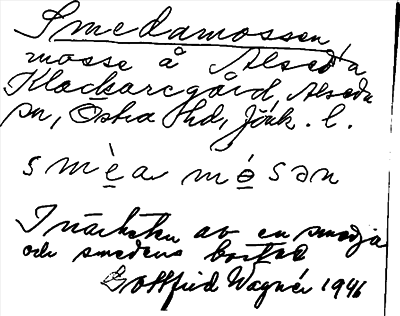 Smedamossen,
mosse å Alseda
Klockaregård, Alseda
sn, Östra hd, Jönk. l.
smèa mósən
I närheten av en smedja
och smedens bostad
Gottfrid Wagnér 1946